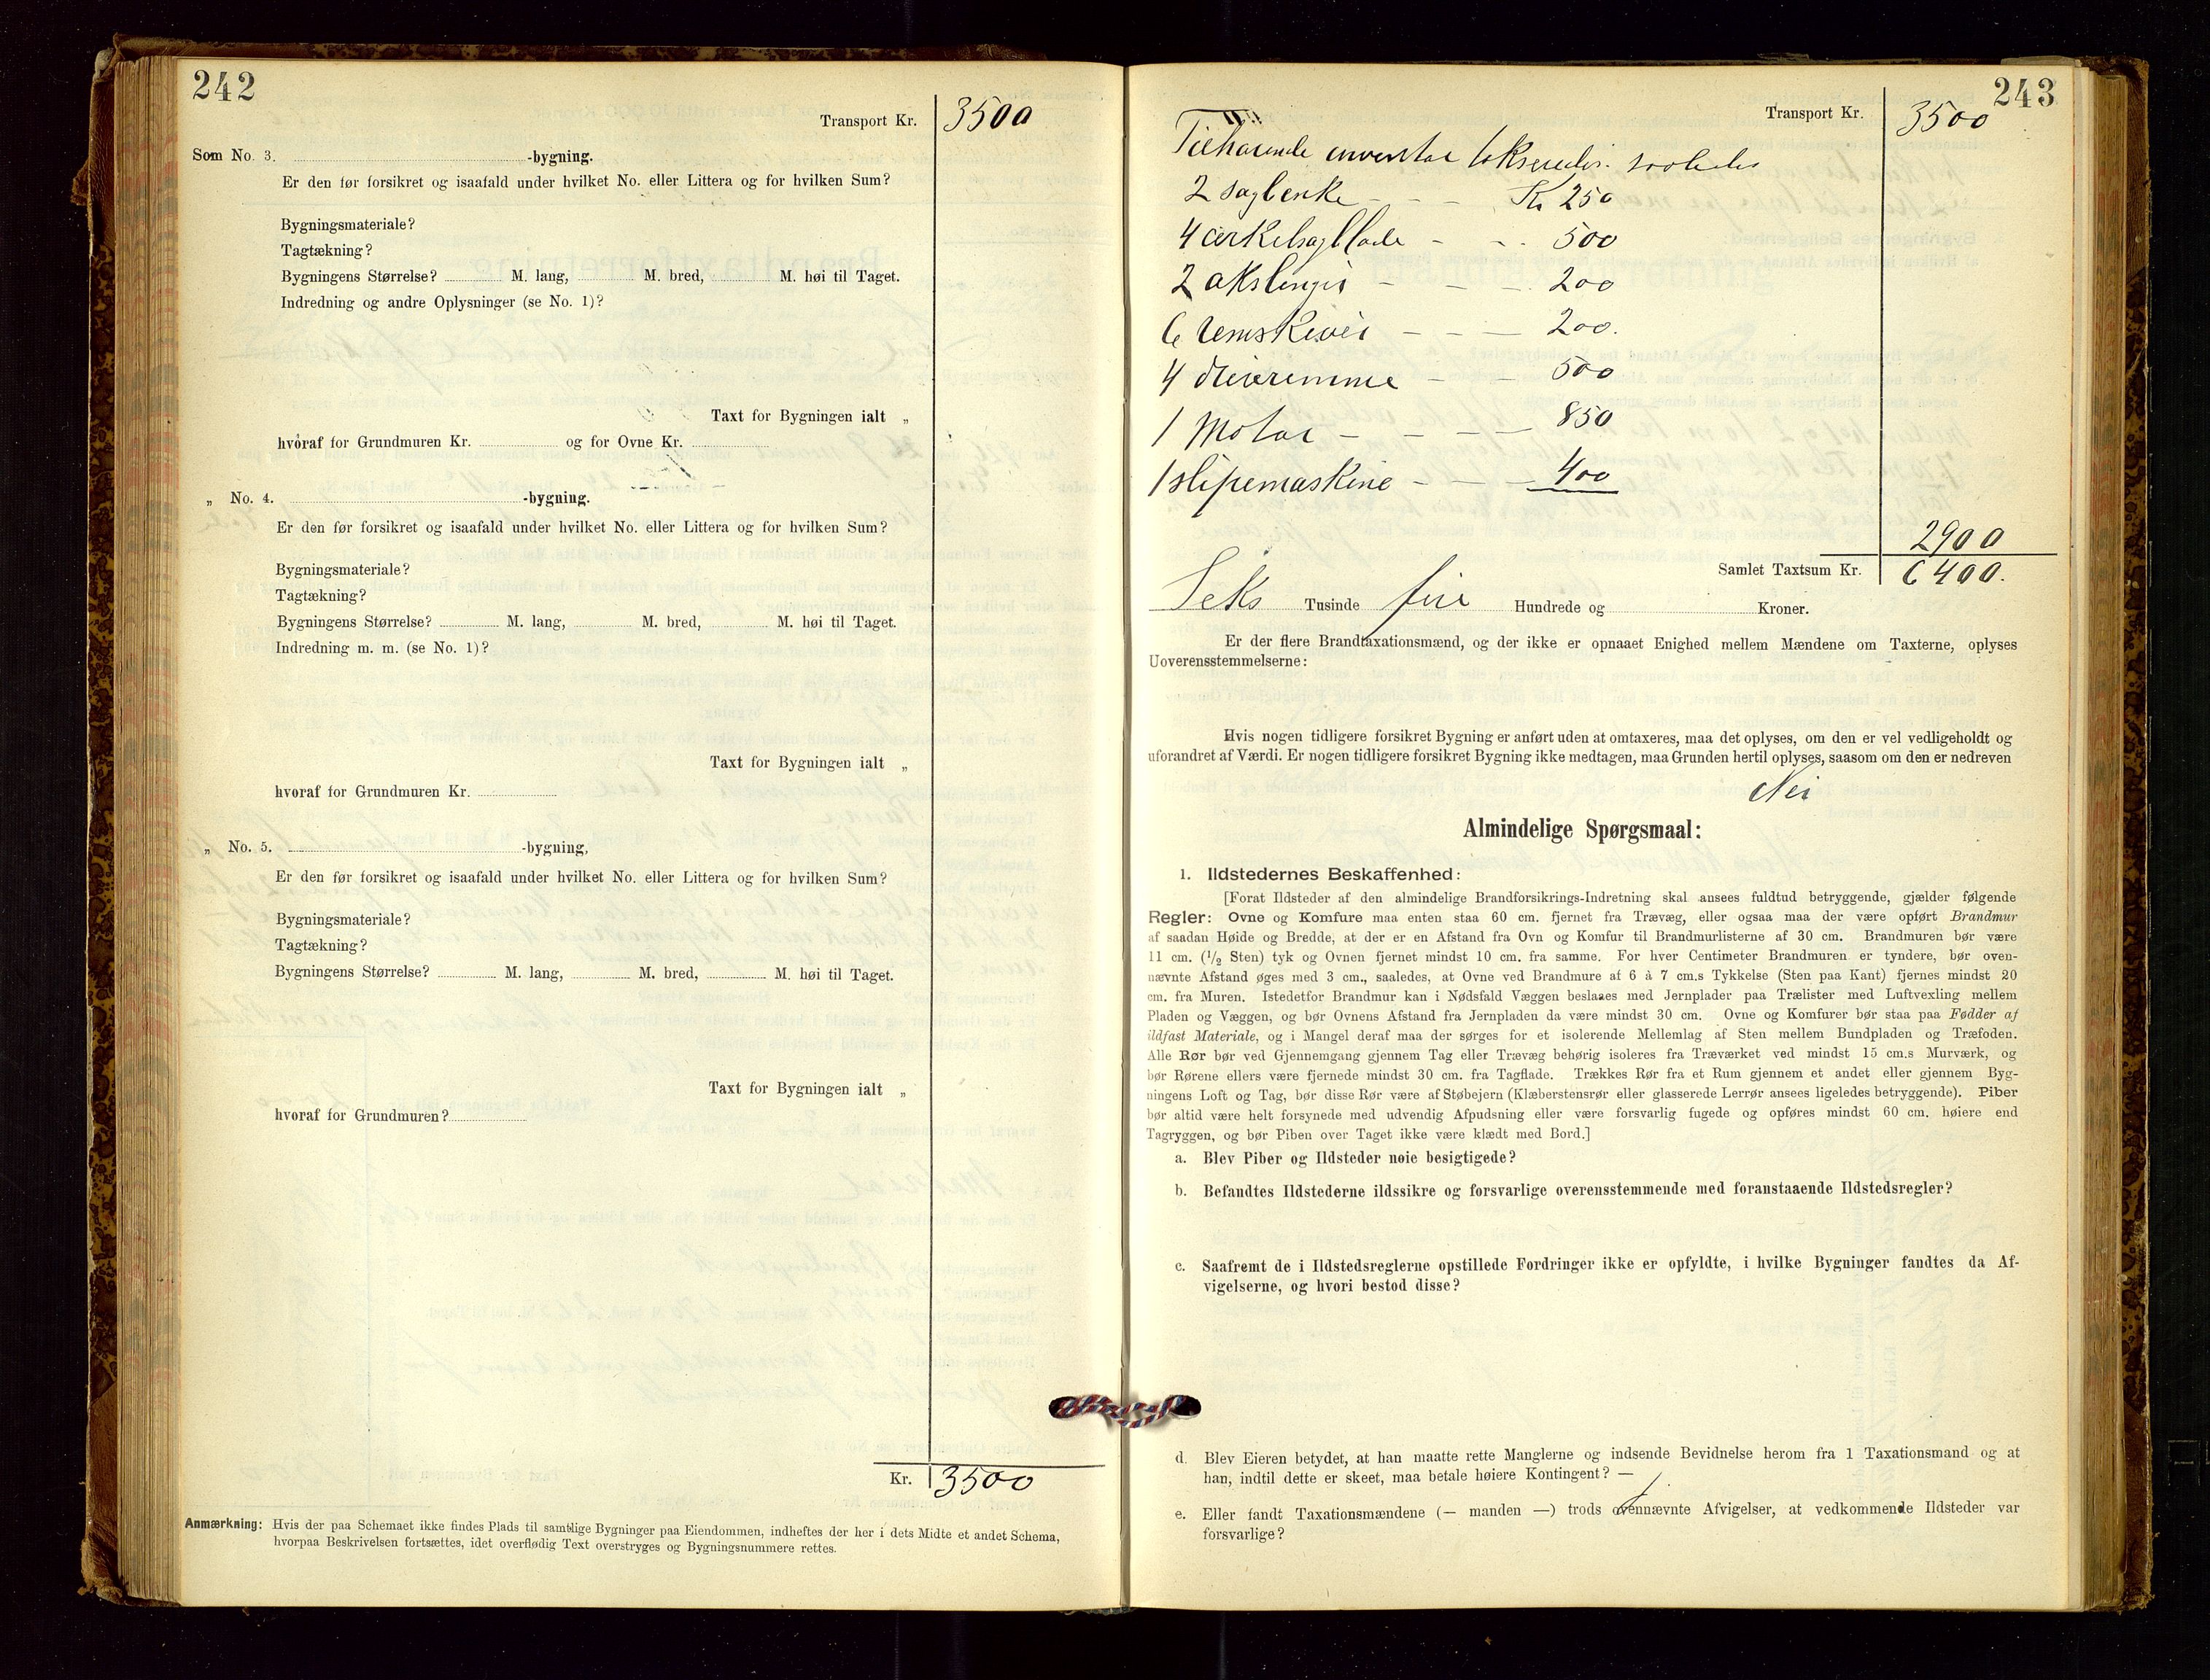 242
Transport Kr. 3500
Som No. 3. -bygning.
Er den før forsikret og isaafald under hvilket No. eller Littera og for hvilken Sum?
Bygningsmateriale?
Tagtækning?
Bygningens Størrelse? M. lang, M. bred, M. høi til Taget.
Indredning og andre Oplysninger (se No. 1)?
Taxt for Bygningen ialt „
hvoraf for Grundmuren Kr. og for Ovne Kr.
„ No. 4. -bygning.
Er den før forsikret og isaafald under hvilket No. eller Littera og for hvilken Sum?
Bygningsmateriale?
Tagtækning?
Bygningens Størrelse? M. lang, M. bred, M. høi til Taget.
Indredning m. m. (se No. 1)?
Taxt for Bygningen ialt „
hvoraf for Grundmuren Kr.
„ No. 5. -bygning,
Er den før forsikret og isaafald under hvilket No. eller Littera og for hvilken Sum?
Bygningsmateriale?
Tagtækning?
Bygningens Størrelse? M. lang, M. bred, M. høi til Taget.
Taxt for Bygningen ialt „
hvoraf for Grundmuren?
Kr. 3500
Anmærkning: Hvis der paa Schemaet ikke findes Plads til samtlige Bygninger paa Eiendommen, indheftes der her i dets Midte et andet Schema,
hvorpaa Beskrivelsen fortsættes, idet overflødig Text overstryges og Bygningsnummere rettes.
243
Transport Kr. 3500
Tilhørende inventar takseredes saaledes
2 sagbenke - - - Kr 250
4 cirkelsagblade - - - 500
2 akslinger - - - 200
6 remskiver - - - 200.
4 drivremme - - 500
1 Motor - - - - 850
1 slipemaskine - - - 400
2900
Samlet Taxtsum Kr. 6400.
Seks Tusinde fire Hundrede og Kroner.
Er der flere Brandtaxationsmænd, og der ikke er opnaaet Enighed mellem Mændene om Taxterne, oplyses
Uoverensstemmelserne:
Hvis nogen tidligere forsikret Bygning er anført uden at omtaxeres, maa det oplyses, om den er vel vedligeholdt og
uforandret af Værdi. Er nogen tidligere forsikret Bygning ikke medtagen, maa Grunden hertil oplyses, saasom om den er nedreven
Nei
Almindelige Spørgsmaal:
1. Ildstedernes Beskaffenhed:
[Forat Ildsteder af den almindelige Brandforsikrings-Indretning skal ansees fuldtud betryggende, gjælder følgende
Regler: Ovne og Komfure maa enten staa 60 cm. fjernet fra Trævæg, eller ogsaa maa der være opført Brandmur
af saadan Høide og Bredde, at der er en Afstand fra Ovn og Komfur til Brandmurlisterne af 30 cm. Brandmuren bør være
11 cm. (1/2 Sten) tyk og Ovnen fjernet mindst 10 cm. fra samme. For hver Centimeter Brandmuren er tyndere, bør oven-
nævnte Afstand øges med 3 cm., saaledes, at Ovne ved Brandmure af 6 à 7 cm.s Tykkelse (Sten paa Kant) fjernes mindst 20
cm. fra Muren. Istedetfor Brandmur kan i Nødsfald Væggen beslaaes med Jernplader paa Trælister med Luftvexling mellem
Pladen og Væggen, og bør Ovnens Afstand fra Jernpladen da være mindst 30 cm. Ovne og Komfurer bør staa paa Fødder af
ildfast Materiale, og i Mangel deraf maa der sørges for et isolerende Mellemlag af Sten mellem Bundpladen og Træfoden.
Alle Rør bør ved Gjennemgang gjennem Tag eller Trævæg behørig isoleres fra Træværket ved mindst 15 cm.s Murværk, og
bør Rørene ellers være fjernede mindst 30 cm. fra Tagflade. Trækkes Rør fra et Rum gjennem et andet eller gjennem Byg-
ningens Loft og Tag, bør disse Rør være af Støbejern (Klæberstensrør eller glasserede Lerrør ansees ligeledes betryggende). Piber
bør altid være helt forsynede med udvendig Afpudsning eller være forsvarlig fugede og opføres mindst 60 cm. høiere end
Tagryggen, og bør Piben over Taget ikke være klædt med Bord.]
a. Blev Piber og Ildsteder nøie besigtigede?
b. Befandtes Ildstederne ildssikre og forsvarlige overensstemmende med foranstaaende Ildstedsregler?
c. Saafremt de i Ildstedsreglerne opstillede Fordringer ikke er opfyldte, i hvilke Bygninger fandtes da Af-
vigelserne, og hvori bestod disse?
d. Blev Eieren betydet, at han maatte rette Manglerne og indsende Bevidnelse herom fra 1 Taxationsmand og at
han, indtil dette er skeet, maa betale høiere Kontingent? —
e. Eller fandt Taxationsmændene (— manden —) trods ovennævnte Afvigelser, at vedkommende Ildsteder var
forsvarlige?